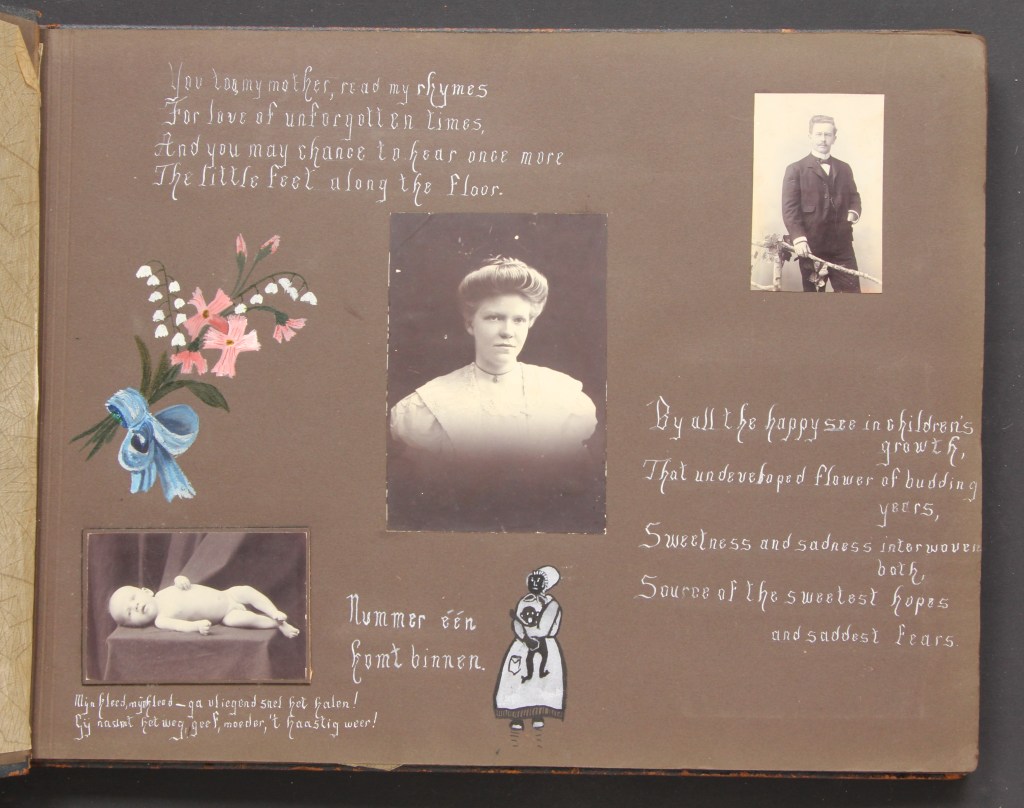 You too, my mother, read my rhymes
For love of unforgotten times,
And you may chance to hear once more
The little feet along the floor.
By all the happy see in children's
growth,
That undeveloped flower of budding
years,
Sweetness and sadness interwoven
both,
Source of the sweetest hopes
and saddest fears.
Nummer één
komt binnen.
Mijn kleed, mijn kleed — ga vliegend snel het halen!
Gij naamt het weg, geef, moeder, 't haastig weer!